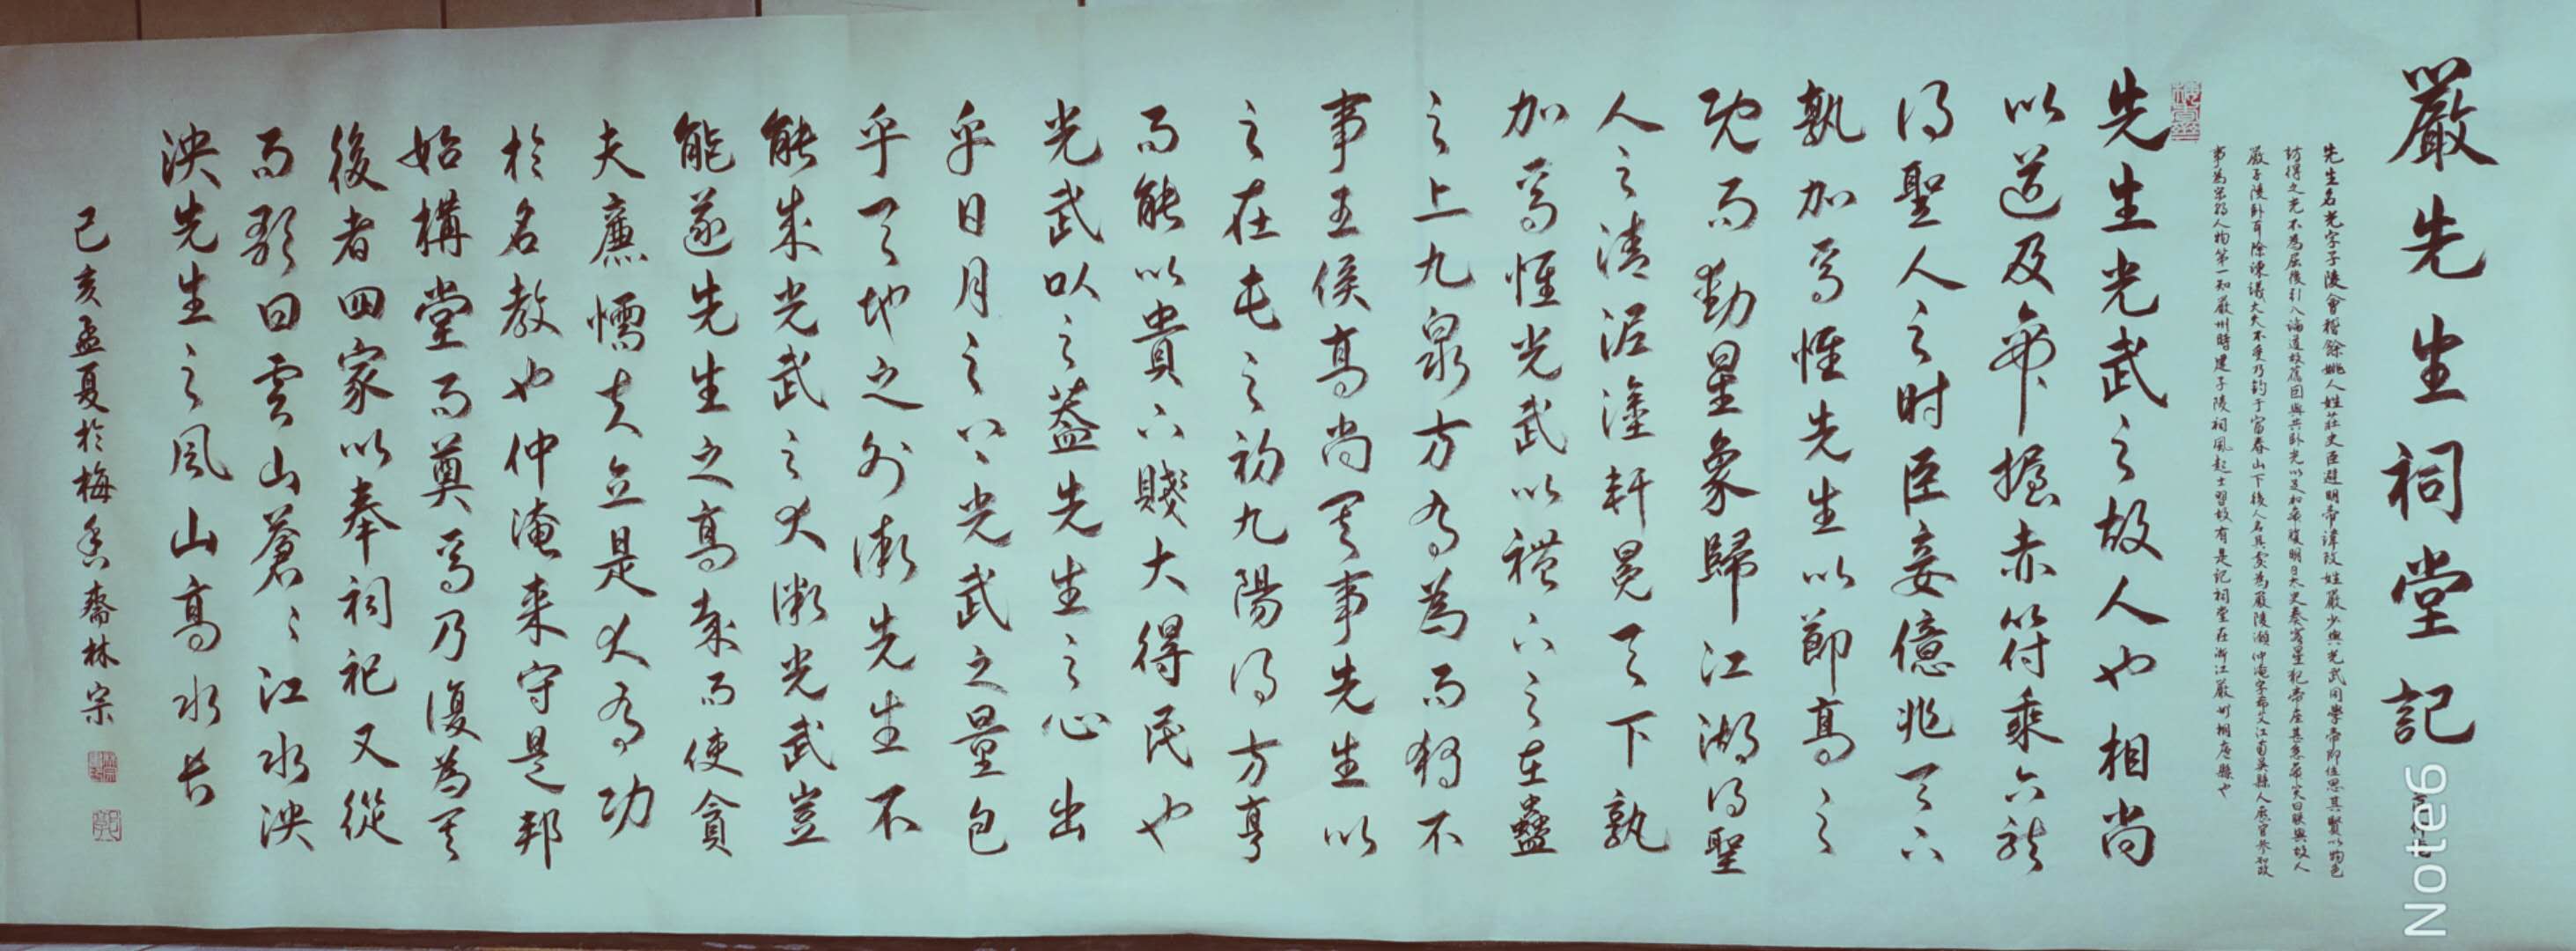 嚴先生祠堂記
先生名光字子陵會稽餘姚人姓莊史臣避明帝諱改姓嚴少與光武同學帝即位思其賢以物色
訪得之光不為屈後引入論道故舊因與共臥光以足加帝腹明日太史奏客星犯帝座甚急帝笑曰朕與故人
嚴子陵臥耳除諫議大夫不受乃釣于富春山下後人名其處為嚴陵瀨仲淹字希文江南吳縣人歷官參知政
事為宋朝人物第一知嚴州時建子陵祠風起士習故有是記祠堂在浙江嚴州桐廬縣也
先生光武之故人也相尚
以道及帝握赤符乘六龍
得聖人之时臣妾億兆天下
孰加焉惟先生以節高之
既而動星象歸江湖得聖
人之清泥塗軒冕天下孰
加焉惟光武以禮下之在蠱
之上九眾方有為而獨不
事王侯高尚其事先生以
之在屯之初九陽得方亨
而能以貴下賤大得民也
光武以之蓋先生之心出
乎日月之上光武之量包
乎天地之外微先生不
能成光武之大微光武豈
能遂先生之高哉而使貪
夫廉懦夫立是大有功
於名教也仲淹來守是邦
始構堂而奠焉乃復為其
後者四家以奉祠祀又從
而歌曰雲山蒼々江水泱
泱先生之風山高水長
己亥孟夏於梅香齋林宗
Note6